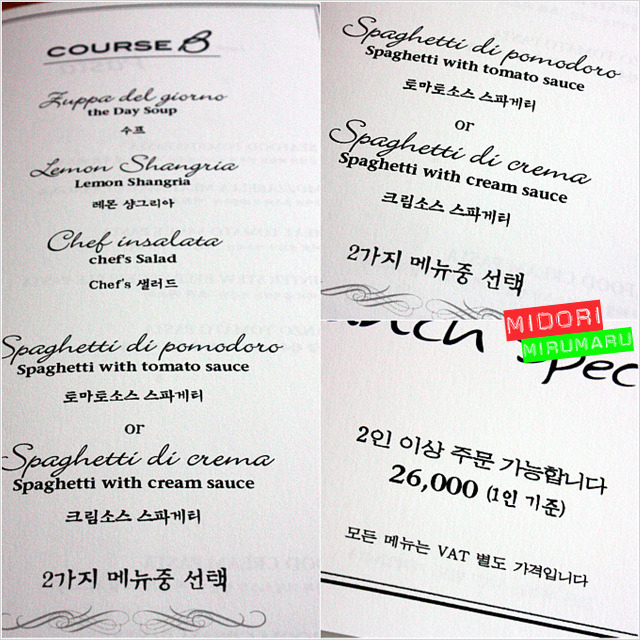 COURSE B
Zuppa del giorno
the Day Soup
수프
Lemon Shangria
Lemon Shangria
레몬 샹그리아
Chef insalata
chef's Salad
Chef's 샐러드
Spaghetti di pomodoro
Spaghetti with tomato sauce
토마토소스 스파게티
or
Spaghetti di crema
Spaghetti with cream sauce
크림소스 스파게티
2가지 메뉴중 선택
Spaghetti di pomodoro
Spaghetti with tomato sauce
토마토소스 스파게티
or
Spaghetti di crema
Spaghetti with cream sauce
크림소스 스파게티
2가지 메뉴중 선택
MIDORI
MIRUMARU
2인 이상 주문 가능합니다
26,000 (1인 기준)
모든 메뉴는 VAT 별도 가격입니다